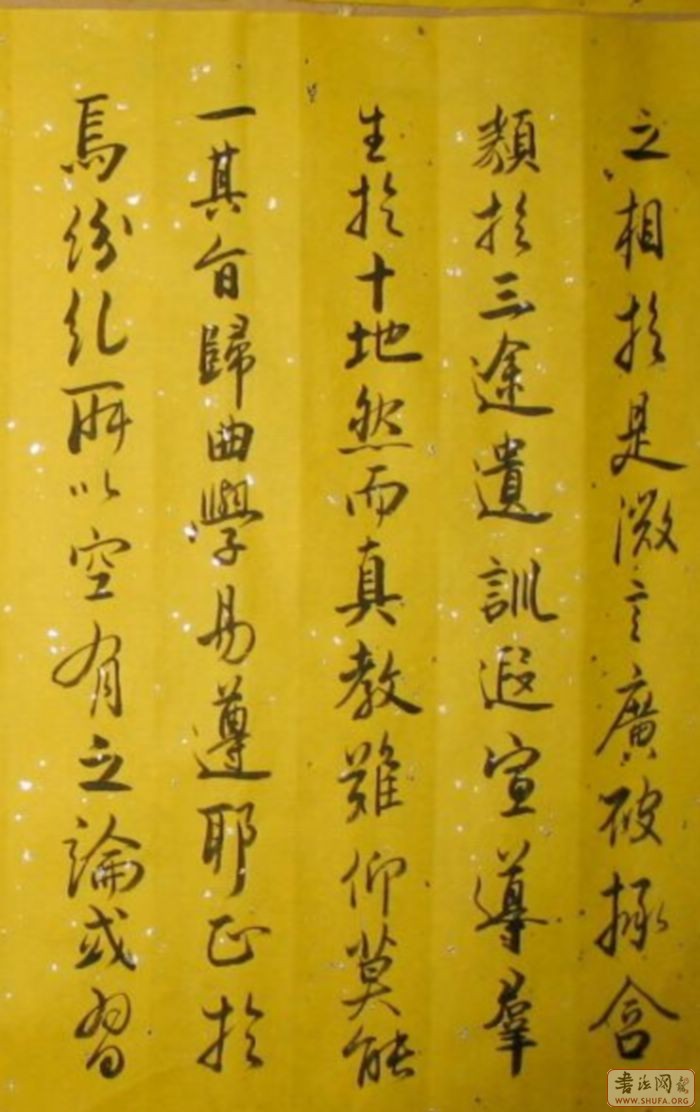 之相於是微言廣被拯含
類於三途遺訓遐宣導羣
生於十地然而真教難仰莫能
一其旨歸曲學易遵耶正於
焉紛糺所以空有之論或習
书法网
WWW.SHUFA.ORG